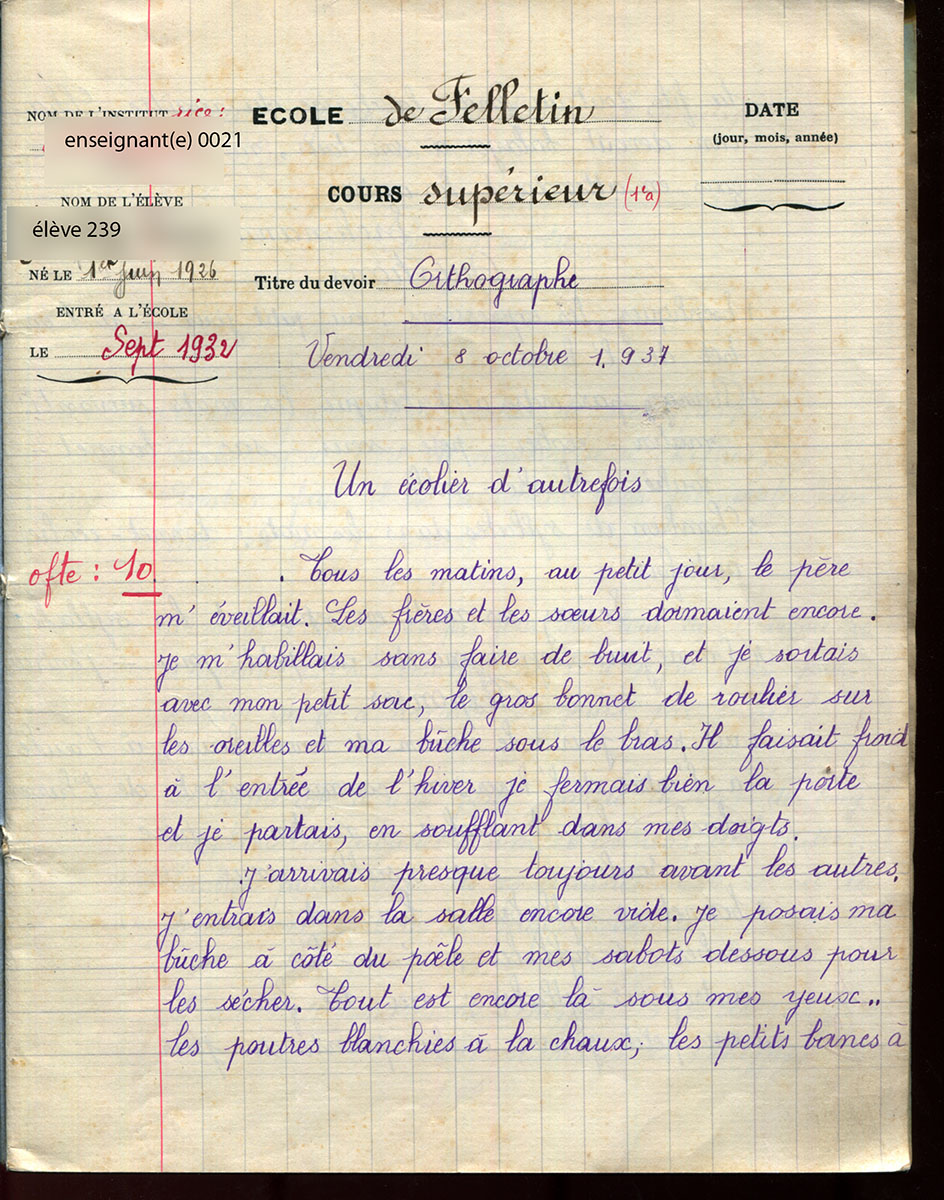 NOM DE L'INSTITUTrice:
enseignant(e) 0021
NOM DE L'ÉLÈVE
élève 239
NÉ LE 1er Juin 1926
ENTRÉ A L'ÉCOLE
LE Sept 1932
ECOLE de Felletin
COURS supérieur (1re a)
Titre du devoir Orthographe
DATE
(jour, mois, année)
Vendredi 8 octobre 1.937
Un écolier d'autrefois
ofte : 10
Tous les matins, au petit jour, le père
m'éveillait. Les frères et les sœurs dormaient encore.
Je m'habillais sans faire de bruit, et je sortais
avec mon petit sac, le gros bonnet de roulier sur
les oreilles et ma bûche sous le bras. Il faisait froid
à l'entrée de l'hiver je fermais bien la porte
et je partais, en soufflant dans mes doigts.
J'arrivais presque toujours avant les autres.
J'entrais dans la salle encore vide. Je posais ma
bûche à côté du poêle et mes sabots dessous pour
les sécher. Tout est encore là sous mes yeux..
les poutres blanchies à la chaux; les petits bancs à